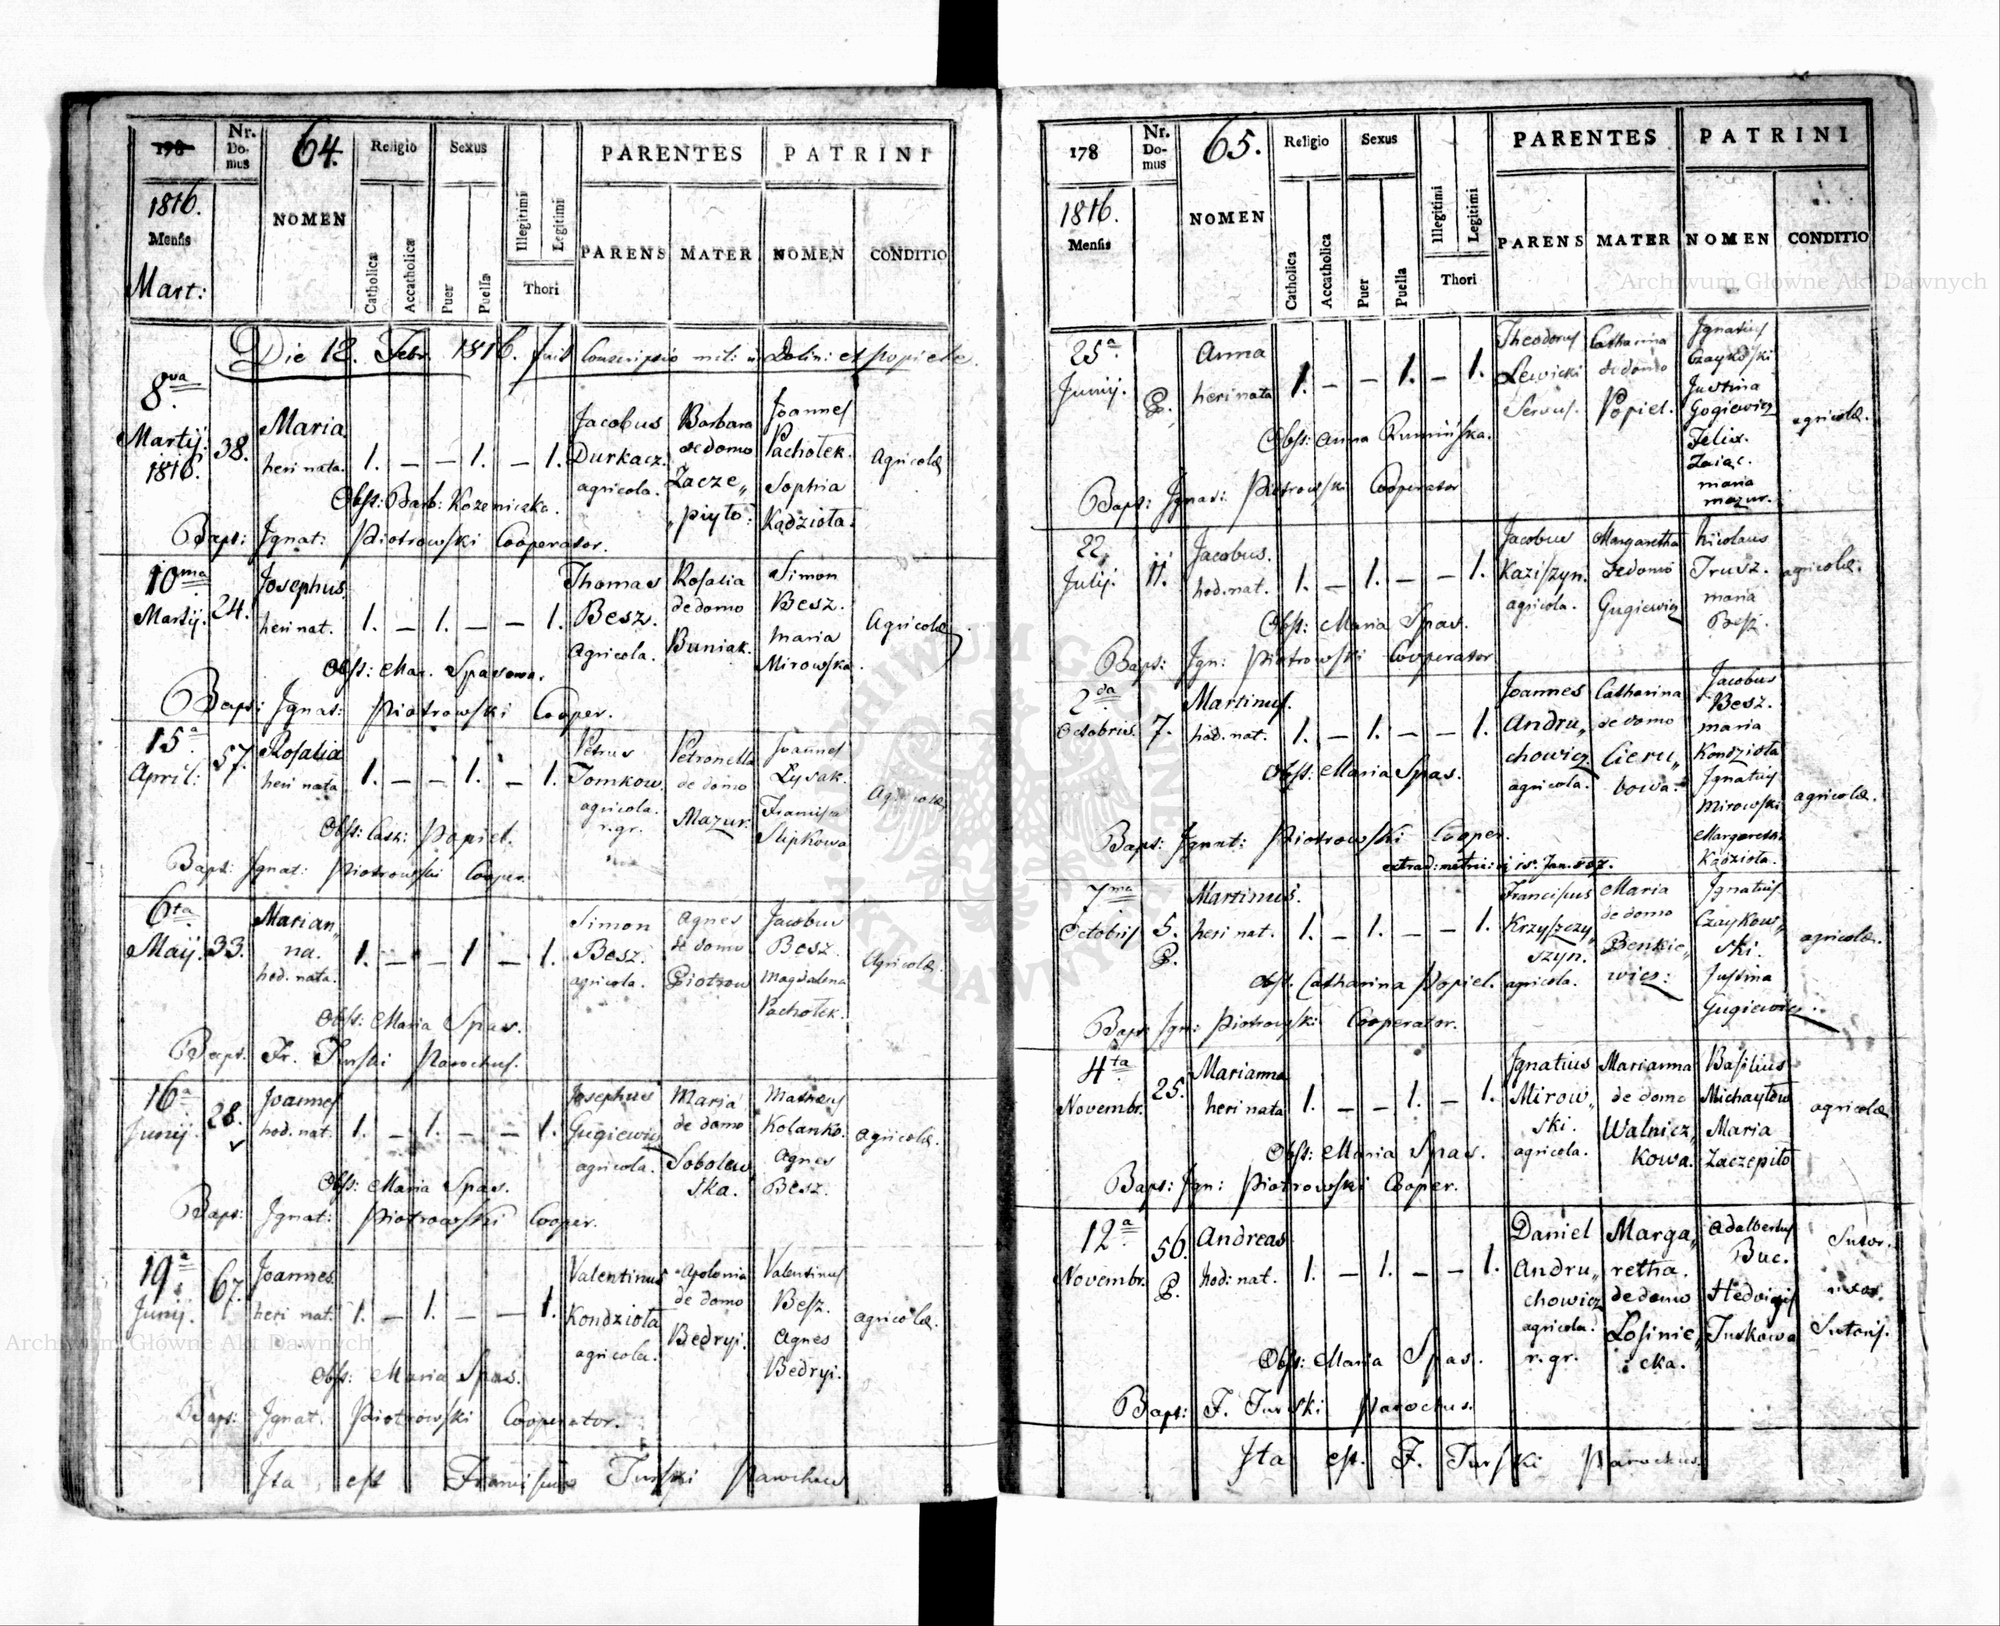 178
Nr.
Do-
mus
64.
Religio
Sexus
Illegitimi
Legitimi
PARENTES
PATRINI
1816.
Mensis
Mart:
NOMEN
Catholica
Accatholica
Puer
Puella
Thori
PARENS
MATER
NOMEN
CONDITIO
Die 12. Febr. 1816. fuit Conscripsio mili: in Dolin: et Popiele.
8va
Martij.
1816.
38.
Maria
heri nata.
1. — — 1. — 1.
Jacobus
Durkacz.
agricola.
Barbara
de domo
Zacze„
„piyto:
Joannes
Pachołek.
Sophia
Kądzioła.
Agricolæ
Obst: Barb: Kozeniczka.
Bapt: Ignat: Piotrowski Cooperator.
10ma
Martij.
24.
Josephus.
heri nat.
1. — 1. — — 1.
Thomas
Besz.
Agricola.
Rosalia
de domo
Buniak.
Simon
Besz.
Maria
Mirowska.
Agricolæ
Obst: Mar. Spasowa.
Bapt: Ignat: Piotrowski Cooper.
15a
April:
57.
Rosalia
heri nata
1. — — 1. — 1.
Petrus
Tomkow.
agricola.
r. gr.
Petronella
de domo
Mazur.
Joannes
Lysak.
Francisca
Slipkowa
Agricolæ
Obst: Cath: Popiel.
Bapt: Ignat: Piotrowski Cooper.
6ta
Maij.
33.
Marian„
na.
hod. nata.
1. — — 1 — 1.
Simon
Besz.
agricola.
Agnes
de domo
Piotrow
Jacobus
Besz.
Magdalena
Pachołek.
Agricolæ.
Obst: Maria Spas.
Bapt. Fr. Turski Parochus.
16a
Junij.
28.
Joannes
hod. nat.
1. — 1. — — 1.
Josephus
Gugiewicz
agricola.
Maria
de domo
Sobolew
ska.
Matheus
Kolanko.
Agnes
Besz.
agricolæ.
Obst: Maria Spas.
Bapt: Ignat: Piotrowski Cooper.
19a
Junij.
67.
Joannes.
heri nat.
1. — 1. — — 1.
Valentinus
Kondzioła
agricola.
Apolonia
de domo
Bedryi.
Valentinus
Besz.
Agnes
Bedryi.
agricolæ.
Obst: Maria Spas.
Bapt: Ignat. Piotrowski Cooperator.
Ita est Franciscus Turski Parochus
178
Nr.
Do-
mus
65.
Religio
Sexus
Illegitimi
Legitimi
PARENTES
PATRINI
1816.
Mensis
NOMEN
Catholica
Accatholica
Puer
Puella
Thori
PARENS
MATER
NOMEN
CONDITIO
25a
Junij.
P.
Anna
heri nata
1. — — 1. — 1.
Theodorus
Lewicki
Servus.
Catharina
de domo
Popiel.
Ignatius
Czaykoski
Justina
Gogiewicz
Felix.
Zaiąc.
Maria
Mazur.
agricolæ.
Obst: Anna Rumińska.
Bapt: Ignat: Piotrowski Cooperator
22.
Julij.
11.
Jacobus.
hod. nat.
1. — 1. — — 1.
Jacobus
Kaziszyn.
agricola.
Margaretha
de domo
Gugiewicz
Nicolaus
Trusz.
Maria
Besz.
agricolæ.
Obst: Maria Spas.
Bapt: Ign: Piotrowski Cooperator
2da
Octobris.
7.
Martinus.
hod. nat.
1. — 1. — — 1.
Joannes
Andru„
chowicz
agricola.
Catharina
de domo
Cieru„
bowa.
Jacobus
Besz.
Maria
Kondzioła
Ignatius
Mirowski
Margaretha
Kądzioła.
agricolæ.
Obst: Maria Spas.
Bapt: Ignat: Piotrowski Cooper.
extrad: metric:
7ma
Octobris
5.
P.
Martinus.
heri nat.
1. — 1. — — 1.
Franciscus
Krzyszczy„
szyn.
agricola.
Maria
de domo
Benkie„
wicz:
Ignatius
Czaykow„
ski.
Justina
Gugiewicz.
agricolæ.
Obst. Catharina Popiel.
Bapt: Ign: Piotrowski Cooperator.
4ta
Novembr.
25.
Marianna
heri nata
1. — — 1. — 1.
Ignatius
Mirow„
ski.
agricola.
Marianna
de domo
Walnicz„
kowa.
Basilius
Michayłow
Maria
Zaczepiło
agricolæ
Obst: Maria Spas.
Bapt: Ign: Piotrowski Cooper.
12a
Novembr.
56.
P.
Andreas
hod: nat.
1. — 1. — — 1.
Daniel
Andru„
chowicz
agricola.
r. gr.
Marga„
retha.
de domo
Losinie„
cka.
Adalbertus
Buc.
Hedvigis
Turkowa
Sutor.
uxor.
Sutoris.
Obst: Maria Spas.
Bapt: F. Turski Parochus.
Ita est. F. Turski Parochus.
Archiwum Główne Akt Dawnych
Archiwum Główne Akt Dawnych
ARCHIWUM GŁÓWNE AKT DAWNYCH